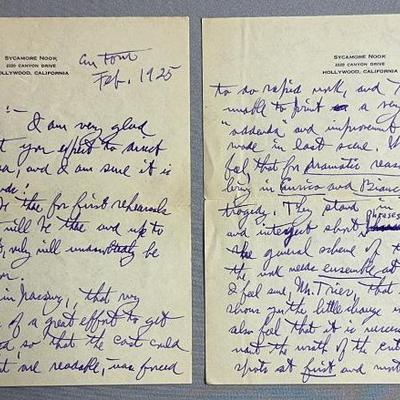 SYCAMORE NOOK
2220 CANYON DRIVE
HOLLYWOOD, CALIFORNIA
on tour
Feb. 1925
:-
I am very glad
you expect to direct
and I am sure it is
the for first rehearsals
will be the and up to
only will undoubtedly be
in passing, that very
of a great effort to get
so that the cast could
are readable, was forced
SYCAMORE NOOK
2220 CANYON DRIVE
HOLLYWOOD, CALIFORNIA
to so rapid work, and
unable to print a very
"addenda" and improvement
made in last scene.
feel that for dramatic reasons
bring in Enrico and Bianca
tragedy. They stand in
and interject short phrases
the general scheme of
the work needs ensemble at
I feel sure, Mr. Trier, that
shows in the little change
also feel that it is
want the wrath of the
spots at first and